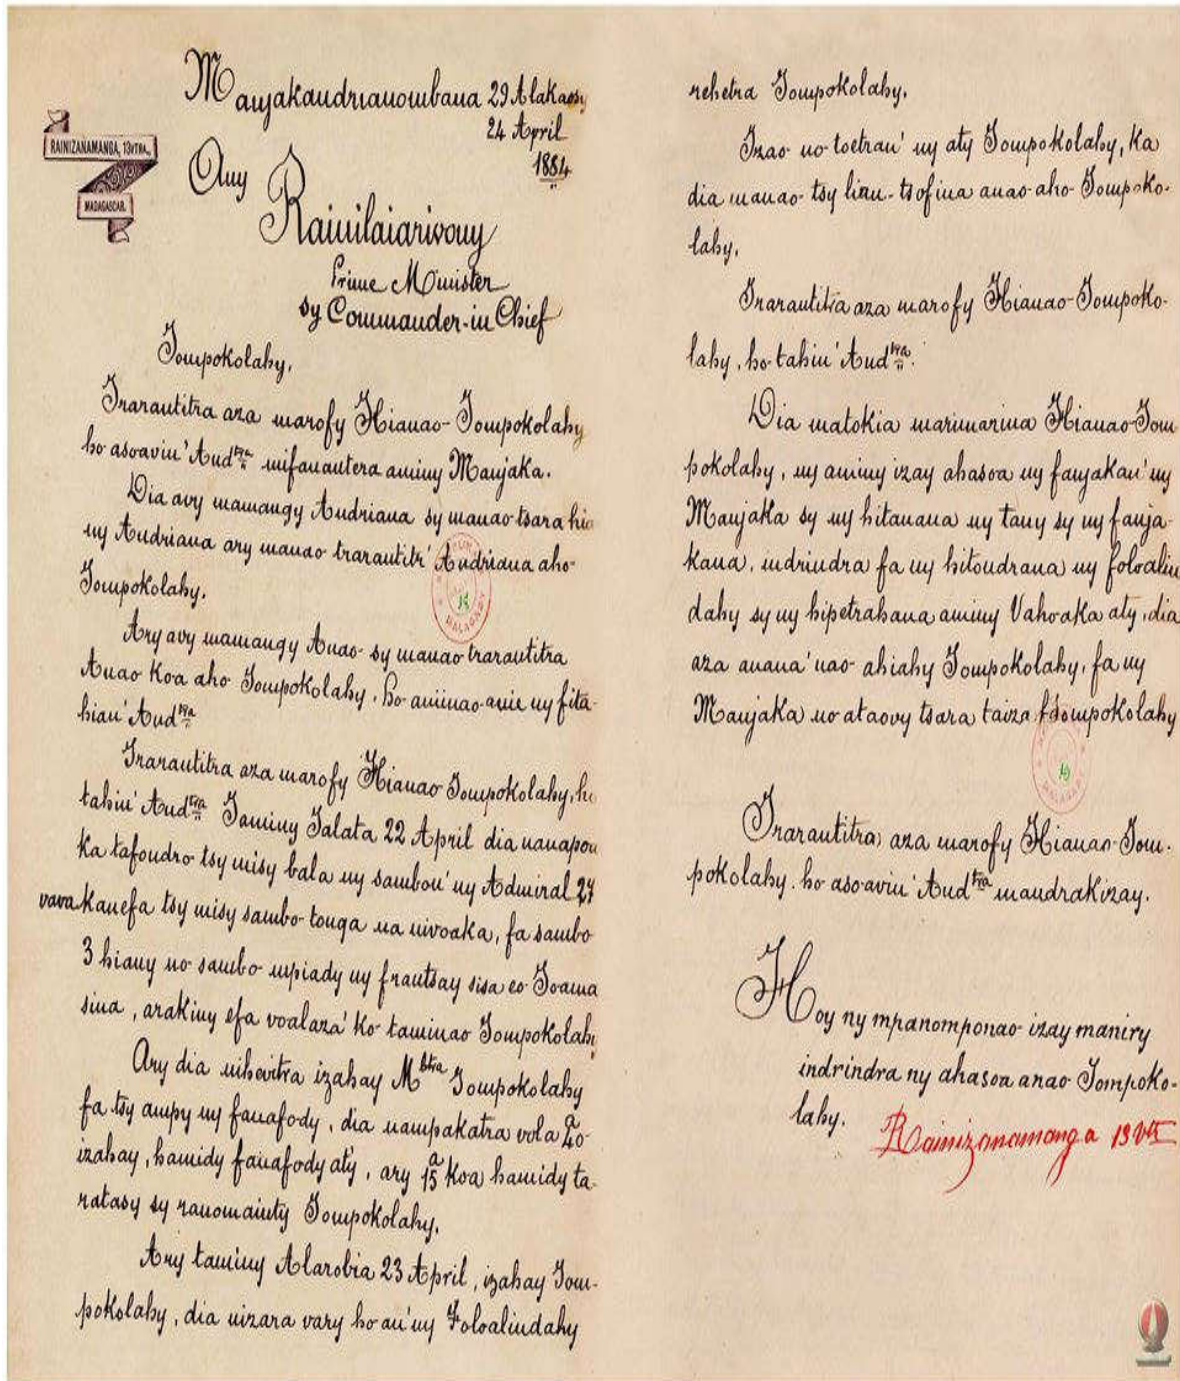 Manjakandrianombana 29 Alakaosy
24 April
1884
RAINIZANAMANGA, 13VTRA.,
MADAGASCAR.
Any
Rainilaiarivony
Prime Minister
sy Commander-in Chief
Tompokolahy,
Trarantitra aza marofy Hianao Tompokolahy
ho asoavin' And<sup>tra</sup> mifanantera aminy Manjaka.
Dia avy mamangy Andriana sy manao tsara hia
ny Andriana ary manao trarantitr' Andriana aho
Tompokolahy.
Ary avy mamangy Anao sy manao trarantitra
Anao koa aho Tompokolahy, ho aminao anie ny fita-
hian' And<sup>tra</sup>
Trarantitra aza marofy Hianao Tompokolahy, ho
tahin' And<sup>tra</sup> Taminy Talata 22 April dia nanapoa
ka tafondro tsy misy bala ny sambon' ny Admiral 27
vava kanefa tsy misy sambo tonga na nivoaka, fa sambo
3 hiany no sambo mpiady ny frantsay sisa eo Toama
sina, arakiny efa voalaza' ko taminao Tompokolahy
Ary dia nihevitra izahay M<sup>btra</sup> Tompokolahy
fa tsy ampy ny fanafody, dia nampakatra vola 20
izahay, hamidy fanafody aty, ary 15 koa hamidy ta-
ratasy sy ranomainty Tompokolahy.
Ary taminy Alarobia 23 April, izahay Tom-
pokolahy, dia nizara vary ho an' ny Foloalindahy
rehetra Tompokolahy.
Izao no toetran' ny aty Tompokolahy, ka
dia manao tsy lian-tsofina anao aho Tompoko-
lahy.
Trarantitra aza marofy Hianao Tompoko-
lahy, ho tahin' And<sup>tra</sup>.
Dia matokia marimarina Hianao Tom
pokolahy, ny aminy izay ahasoa ny fanjakan' ny
Manjaka sy ny hitanana ny tany sy ny fanja-
kana, indrindra fa ny hitondrana ny foloalin
dahy sy ny hipetrahana aminy Vahoaka aty, dia
aza anana' nao ahiahy Tompokolahy, fa ny
Manjaka no ataovy tsara taiza Tompokolahy
Trarantitra, aza marofy Hianao Tom-
pokolahy. ho asoavin' And<sup>tra</sup> mandrakizay.
Hoy ny mpanomponao izay maniry
indrindra ny ahasoa anao Tompoko-
lahy.
Rainizanamanga 13 Vtr